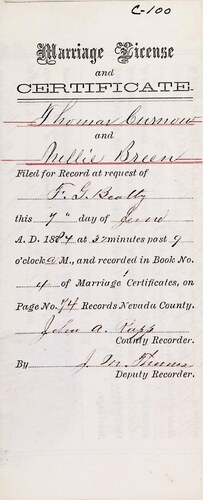 C-100
Marriage License
and
CERTIFICATE.
Thomas Curnow
and
Nellie Breen
Filed for Record at request of
F. G. Beatty
this 7" day of June
A. D. 1884 at 32 minutes past 9
o'clock a M., and recorded in Book No.
4 of Marriage Certificates, on
Page No. 74 Records Nevada County.
John A. Rapp
County Recorder.
By J. M.
Deputy Recorder.